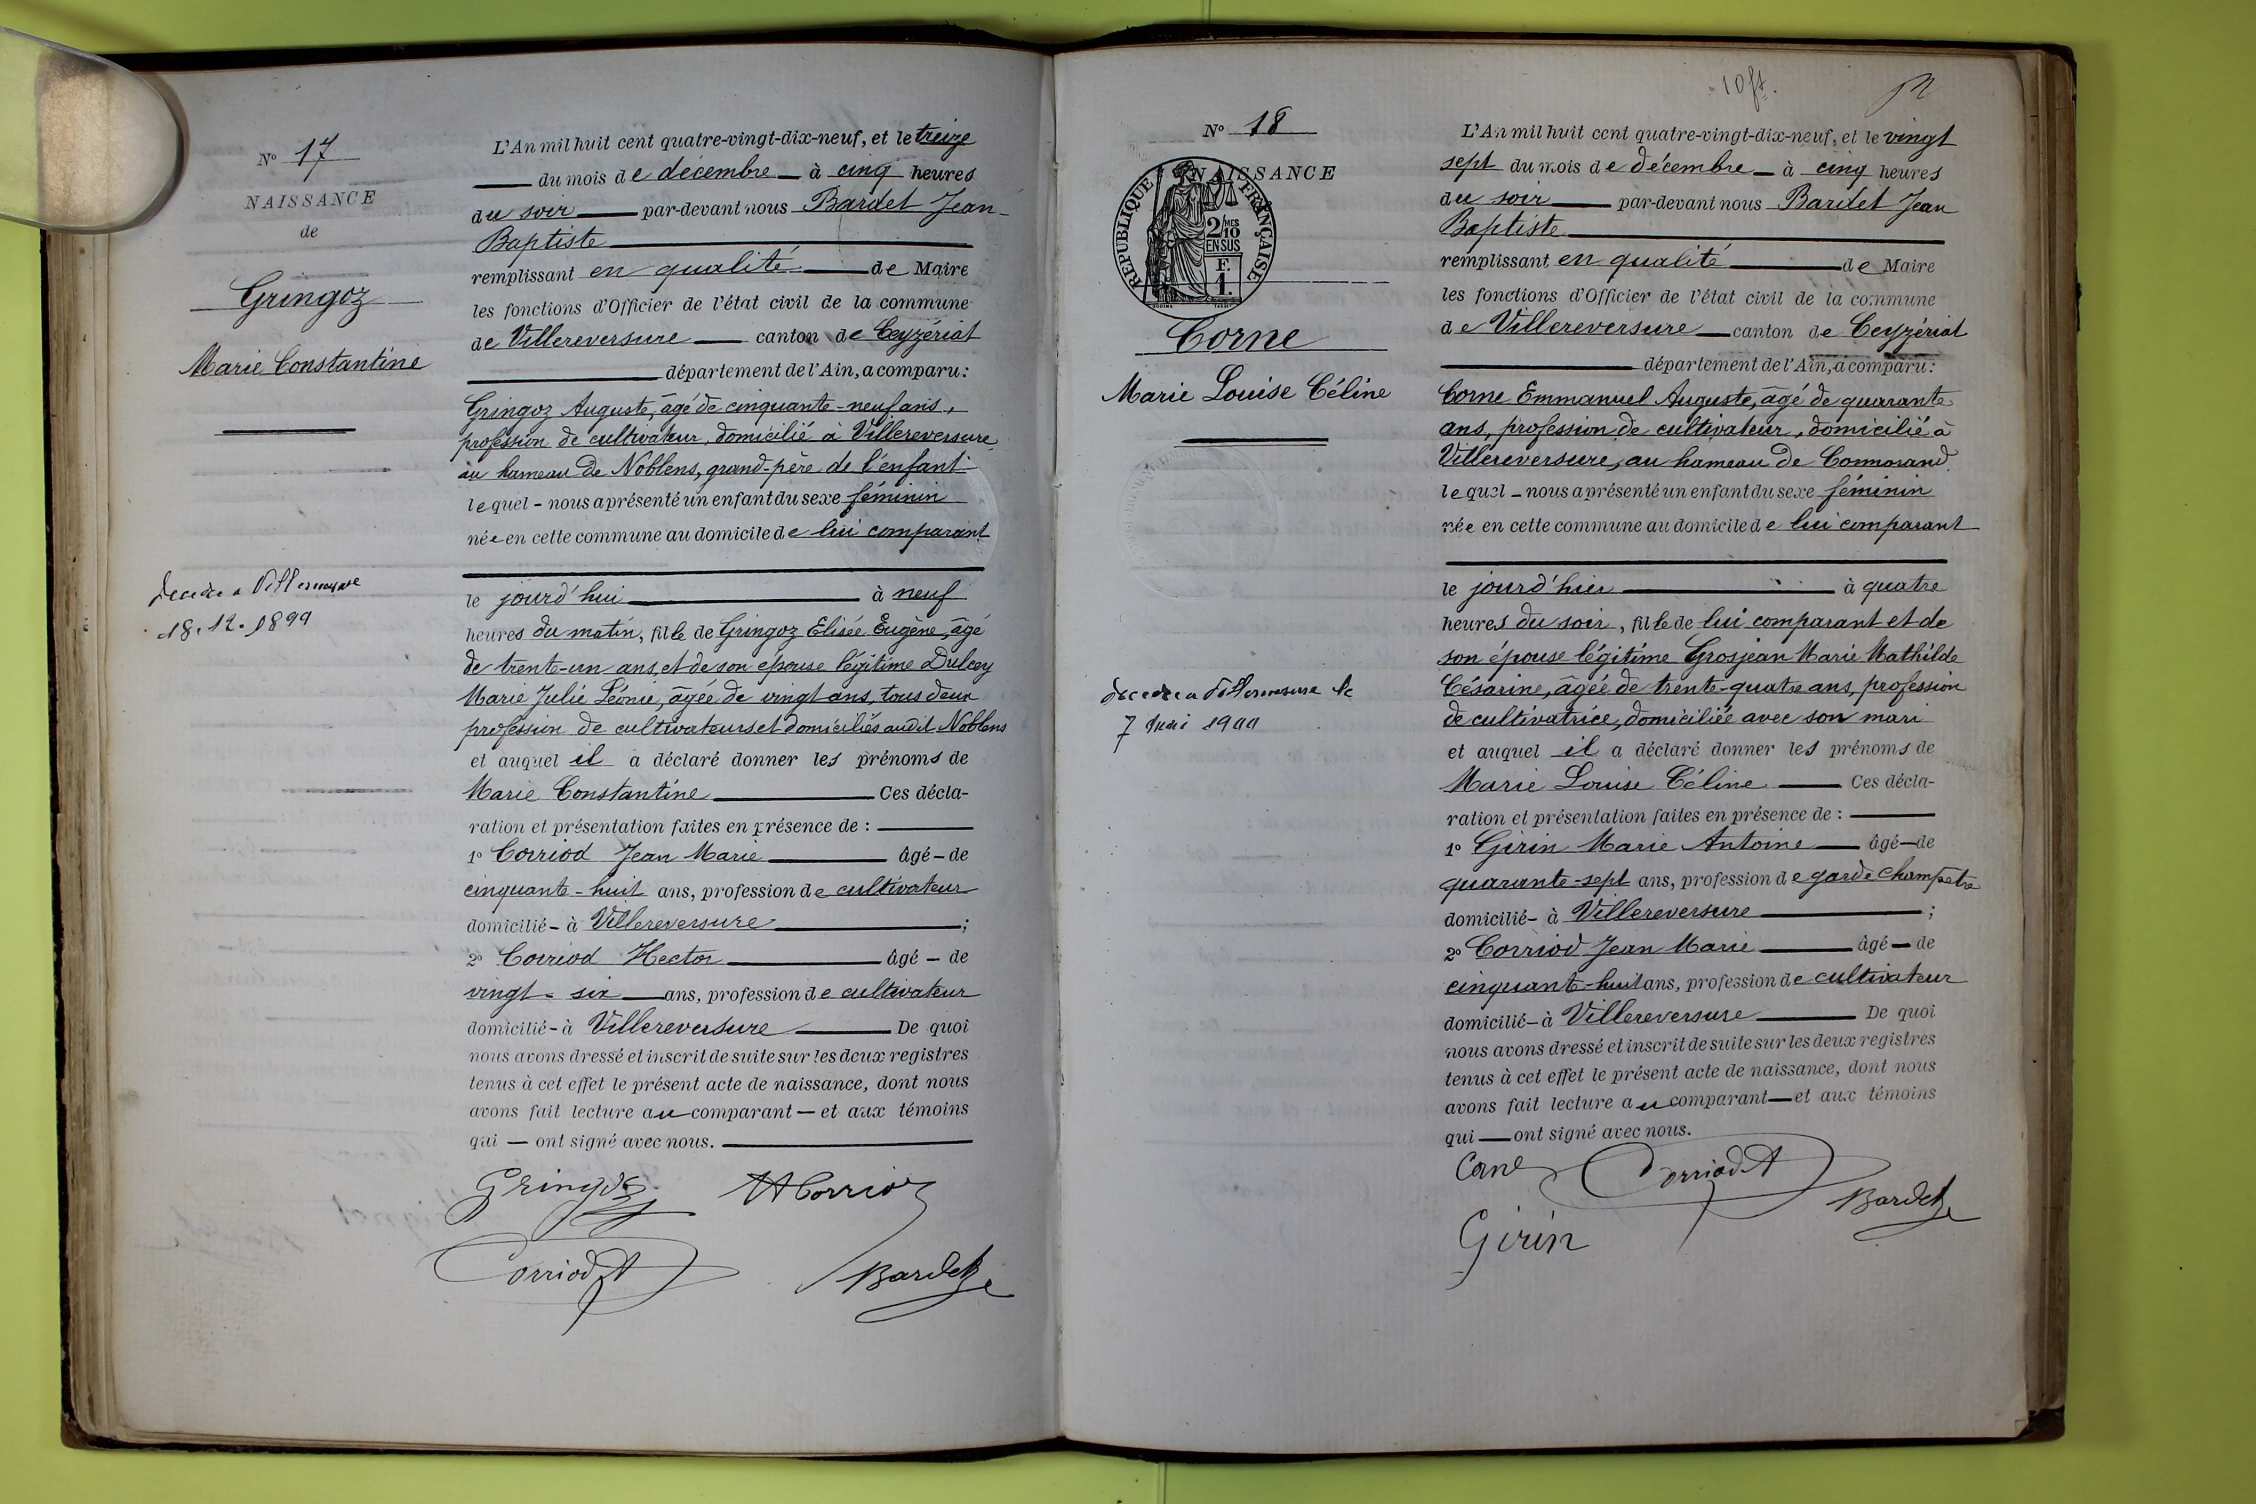 N° 17
NAISSANCE
de
Gringoz
Marie Constantine
18.12.1899
L'An mil huit cent quatre-vingt-dix-neuf, et le treize
du mois de décembre à cinq heures
du soir par-devant nous Bardet Jean-
Baptiste
remplissant en qualité de Maire
les fonctions d'Officier de l'état civil de la commune
de Villereversure canton de Ceyzériat
département de l'Ain, a comparu:
Gringoz Auguste, âgé de cinquante-neuf ans,
profession de cultivateur, domicilié à Villereversure
au hameau de Noblens, grand-père de l'enfant
lequel - nous a présenté un enfant du sexe féminin
née en cette commune au domicile de lui comparant
le jourd'hui à neuf
heures du matin, fille de Gringoz Elisée Eugène, âgé
de trente-un ans, et de son épouse légitime Dulcey
Marie Julie Léonie, âgée de vingt ans, tous deux
profession de cultivateurs et domiciliés audit Noblens
et auquel il a déclaré donner les prénoms de
Marie Constantine Ces décla-
ration et présentation faites en présence de :
1° Corriod Jean Marie âgé - de
cinquante-huit ans, profession de cultivateur
domicilié - à Villereversure ;
2° Corriod Hector âgé - de
vingt-six ans, profession de cultivateur
domicilié - à Villereversure De quoi
nous avons dressé et inscrit de suite sur les deux registres
tenus à cet effet le présent acte de naissance, dont nous
avons fait lecture au comparant — et aux témoins
qui — ont signé avec nous.
Gringoz H Corriod
Corriod Bardet
10 ft.
N° 18
NAISSANCE
RÉPUBLIQUE FRANÇAISE
2/10 MES
EN SUS
F.
1.
Corne
Marie Louise Céline
décédée à Villereversure le
7 1900
L'An mil huit cent quatre-vingt-dix-neuf, et le vingt
sept du mois de décembre à cinq heures
du soir par-devant nous Bardet Jean
Baptiste
remplissant en qualité de Maire
les fonctions d'Officier de l'état civil de la commune
de Villereversure canton de Ceyzériat
département de l'Ain, a comparu:
Corne Emmanuel Auguste, âgé de quarante
ans, profession de cultivateur, domicilié à
Villereversure, au hameau de Cormorand
lequel - nous a présenté un enfant du sexe féminin
née en cette commune au domicile de lui comparant
le jourd'hier à quatre
heures du soir, fille de lui comparant et de
son épouse légitime Grosjean Marie Mathilde
Césarine, âgée de trente-quatre ans, profession
de cultivatrice, domiciliée avec son mari
et auquel il a déclaré donner les prénoms de
Marie Louise Céline Ces décla-
ration et présentation faites en présence de :
1° Girin Marie Antoine âgé — de
quarante-sept ans, profession de garde champêtre
domicilié - à Villereversure ;
2° Corriod Jean Marie âgé — de
cinquante-huit ans, profession de cultivateur
domicilié - à Villereversure De quoi
nous avons dressé et inscrit de suite sur les deux registres
tenus à cet effet le présent acte de naissance, dont nous
avons fait lecture au comparant — et aux témoins
qui — ont signé avec nous.
Corne Corriod Bardet
Girin